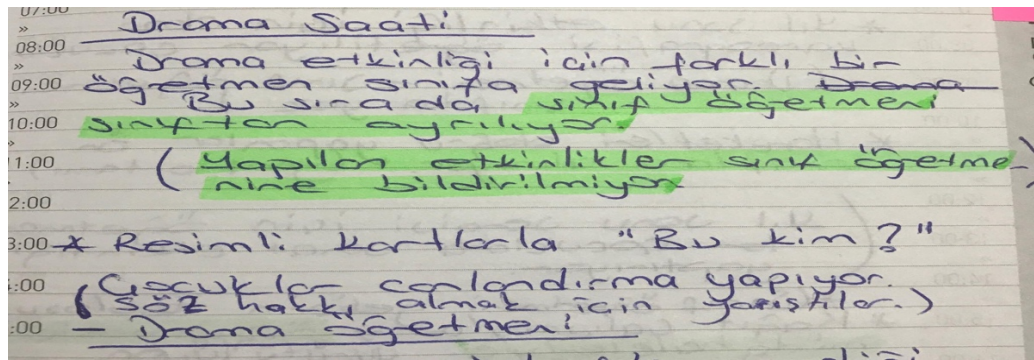 07:00
Drama Saati
»
08:00
Drama etkinliği için farklı bir
»
09:00
öğretmen sınıfa geliyor. Drama
»
Bu sırada sınıf öğretmeni
10:00
sınıftan ayrılıyor.
»
11:00
(Yapılan etkinlikler sınıf öğretme
nine bildirilmiyor)
2:00
3:00
* Resimli kartlarla "Bu kim?"
:00
Çocuklar canlandırma yapıyor.
(söz hakkı almak için yarıştılar.)
:00
- Drama öğretmeni